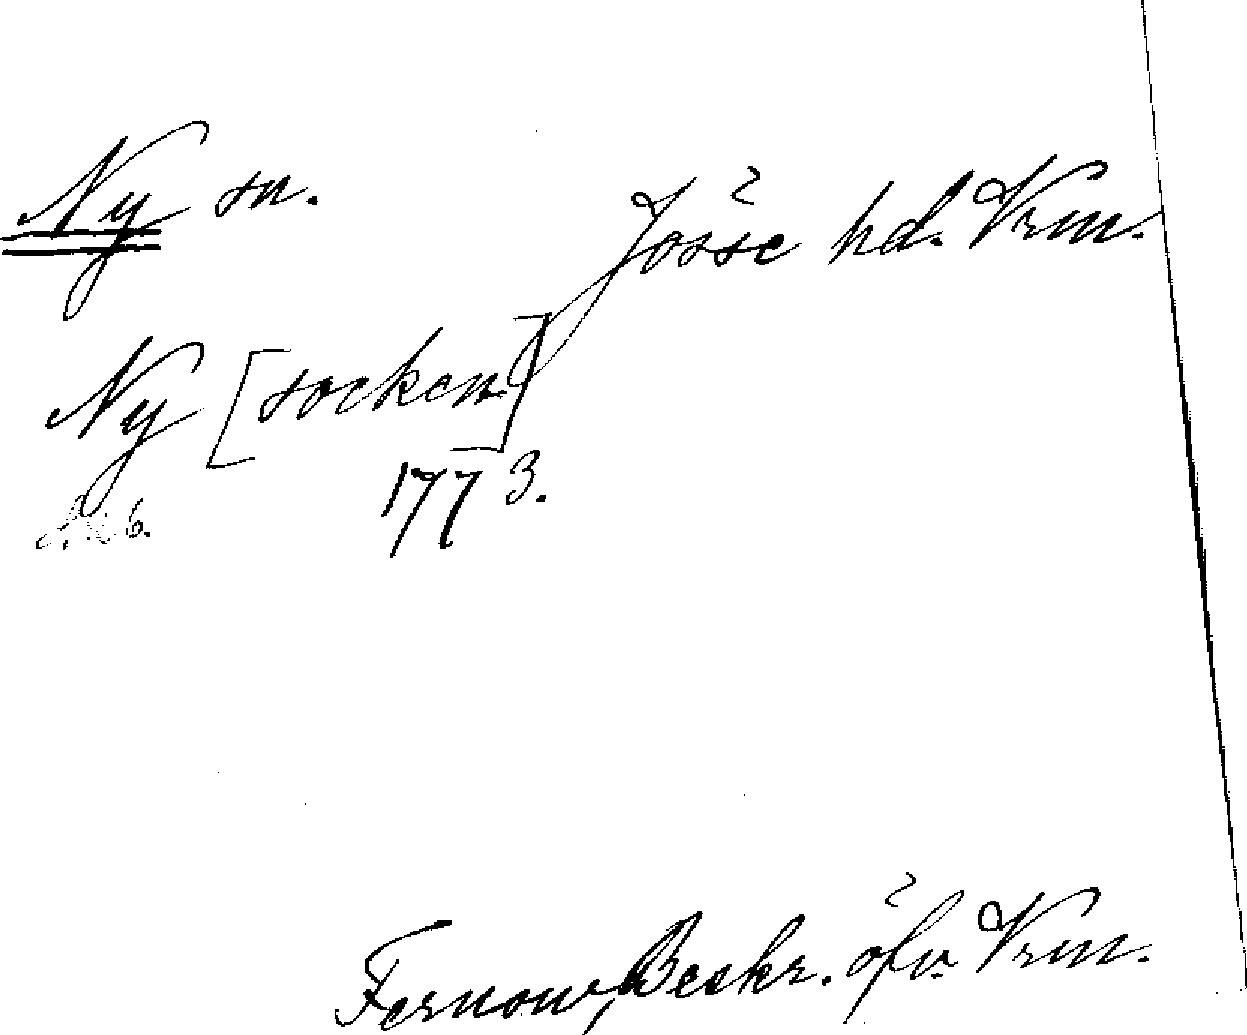 Ny sn.
Jösse hd. Vrm.
Ny [socken]
1773.
Fernow, Beskr. öfv. Vrm.